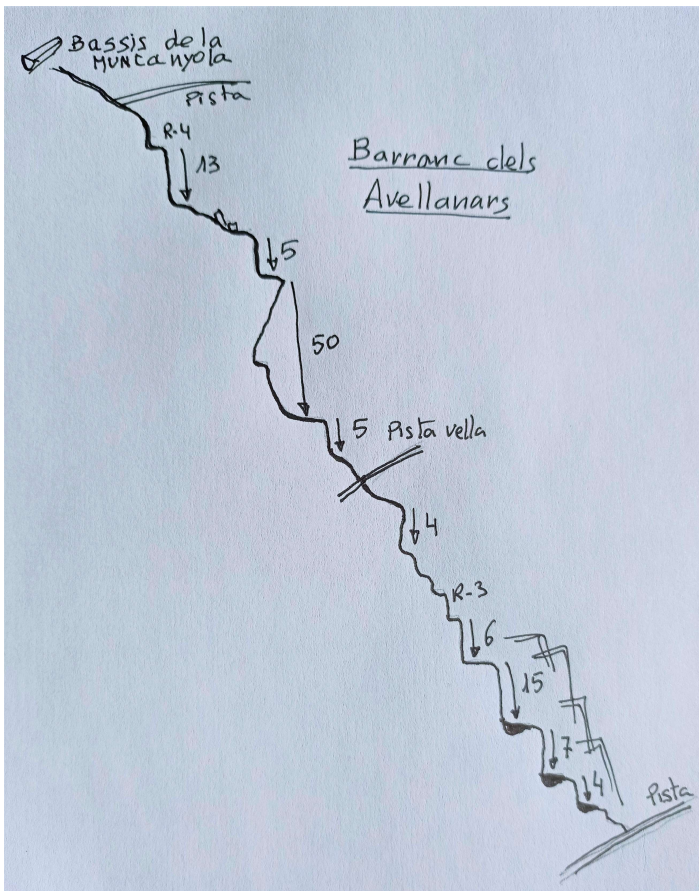 Bassis de la
MUNCanyola
Pista
R-4
13
Barranc dels
Avellanars
5
50
5
Pista vella
4
R-3
6
15
7
4
Pista